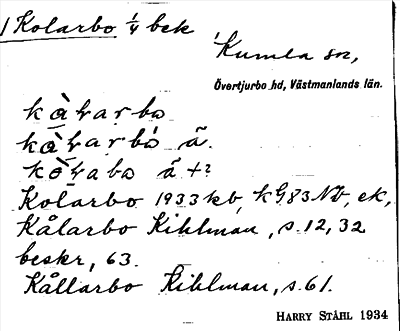 1 Kolarbo 1/4 bek
Kumla sn,
Övertjurbo hd, Västmanlands län.
kòⱡarbo
kòⱡarbò ã.
kòⱡabo ã +?
Kolarbo 1933 kb, kG,83 Nb, ek,
Kålarbo Kihlman, s.12, 32
beskr, 63.
Kållarbo Kihlman, s.61.
HARRY STÅHL 1934